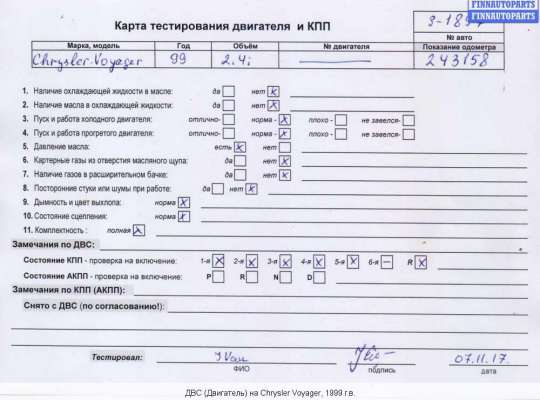 FINNAUTOPARTS
FINNAUTOPARTS
Карта тестирования двигателя и КПП
№ авто
Марка, модель Год Объём № двигателя Показание одометра
Chrysler Voyager 99 2.4i 243158
1. Наличие охлаждающей жидкости в масле: да нет x
2. Наличие масла в охлаждающей жидкости: да нет x
3. Пуск и работа холодного двигателя: отлично- норма - x плохо - не завелся-
4. Пуск и работа прогретого двигателя: отлично- норма - x плохо - не завелся-
5. Давление масла: есть x нет
6. Картерные газы из отверстия масляного щупа: да нет x
7. Наличие газов в расширительном бачке: да нет x
8. Посторонние стуки или шумы при работе: да нет x
9. Дымность и цвет выхлопа: норма x
10. Состояние сцепления: норма x
11. Комплектность : полная x
Замечания по ДВС:
Состояние КПП - проверка на включение: 1-я x 2-я x 3-я x 4-я x 5-я x 6-я – R x
Состояние АКПП - проверка на включение: P R N D
Замечания по КПП (АКПП):
Снято с ДВС (по согласованию!):
Тестировал: 07.11.17.
ФИО подпись дата
ДВС (Двигатель) на Chrysler Voyager, 1999 г.в.